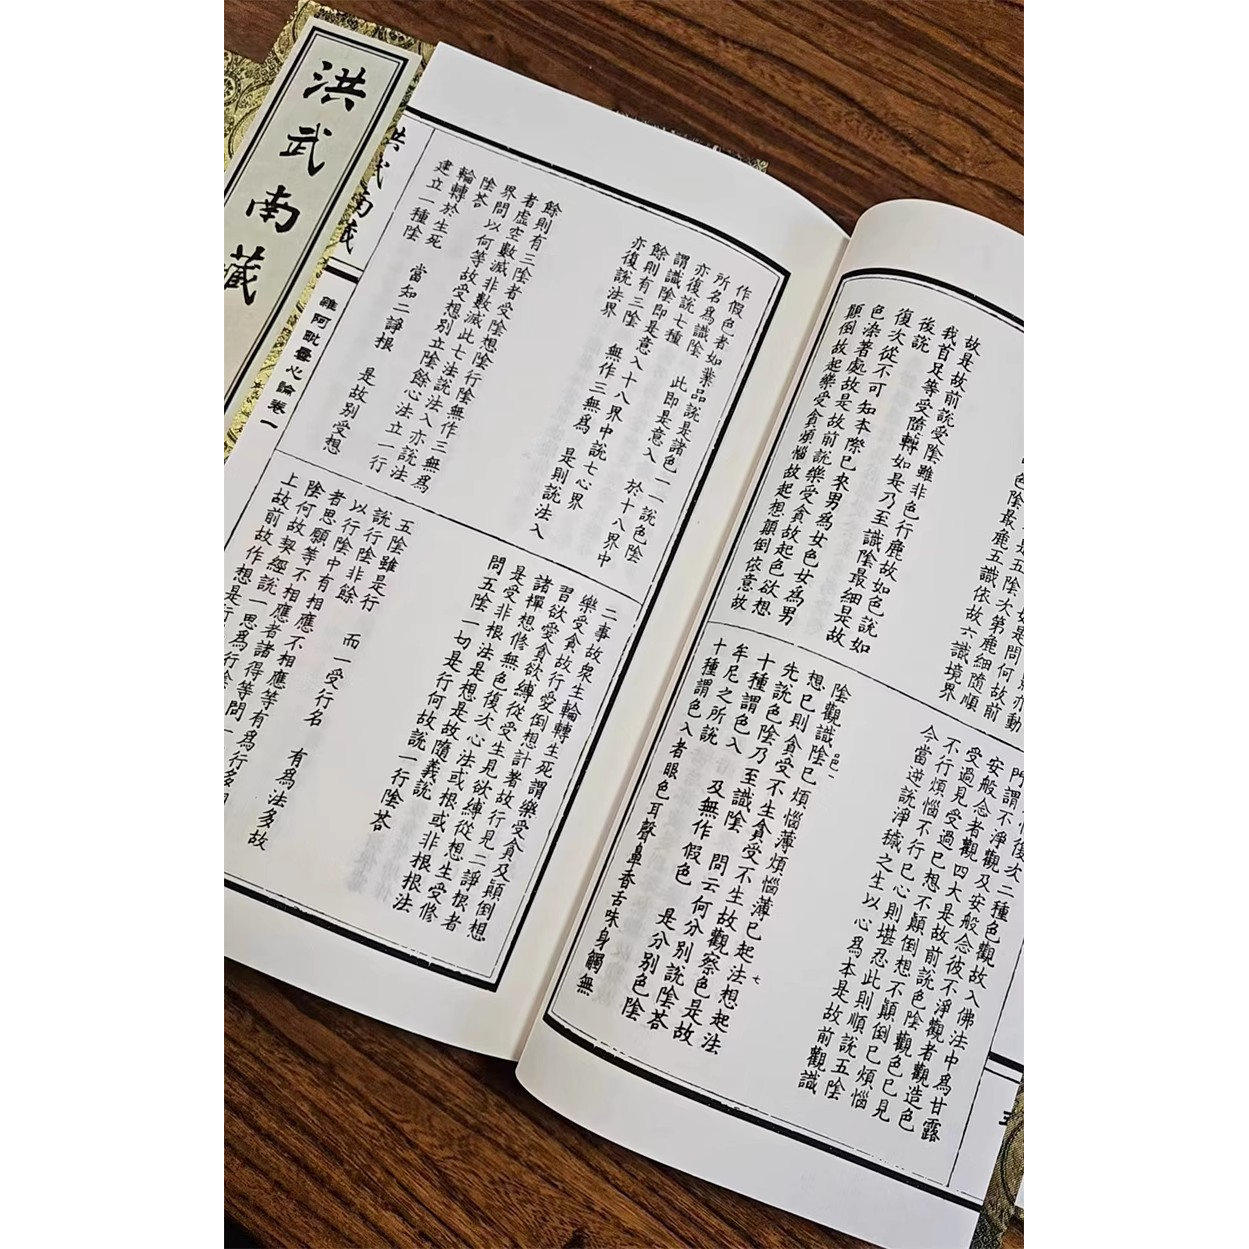 五陰次第麁細隨順
色陰最麁五識依故六識境界
故是故前說受陰雖非色行麁故如色說如
我首足等受隨轉如是乃至識陰最細是故
後說
復次從不可知本際已來男為女色女為男
色染著處故是故前說樂受貪故起色欲想
顛倒故起樂受貪煩惱故起想顛倒依意故
復次二種色觀故入佛法中為甘露
所謂不淨觀及安般念彼不淨觀者觀造色
安般念者觀四大是故前說色陰觀色已見
受過見受過已想不顛倒想不顛倒已煩惱
不行煩惱不行已心則堪忍此則順說五陰
今當逆說淨穢之生以心為本是故前觀識
陰觀識陰已煩惱薄煩惱薄已起法想起法
想已則貪受不生貪受不生故觀察色是故
先說色陰乃至識陰 問云何分別說陰荅
十種謂色入 及無作假色 是分別色陰
牟尼之所說
十種謂色入者眼色耳聲鼻香舌味身觸無
色一
七
作假色者如業品說是諸色一一說色陰
所名為識陰 此即是意入 於十八界中
亦復說七種
謂識陰即是意入十八界中說七心界
餘則有三陰 無作三無為 是則說法入
亦復說法界
餘則有三陰者受陰想陰行陰無作三無為
者虛空數滅非數滅此七法說法入亦說法
界問以何等故受想別立陰餘心法立一行
陰荅
輪轉於生死 當知二諍根 是故別受想
建立一種陰
二事故眾生輪轉生死謂樂受貪及顛倒想
樂受貪故行愛倒想計著故行見二諍根者
習欲愛貪欲縛從受生見欲縛從想生受修
諸禪想修無色復次心法或根或非根根法
是受非根法是想是故隨義說
問五陰一切是行何故說一行陰荅
五陰雖是行 而一受行名 有為法多故
說行陰非餘
以行陰中有相應不相應等有為行多
洪武南藏
雜阿毗曇心論卷一
洪武南藏